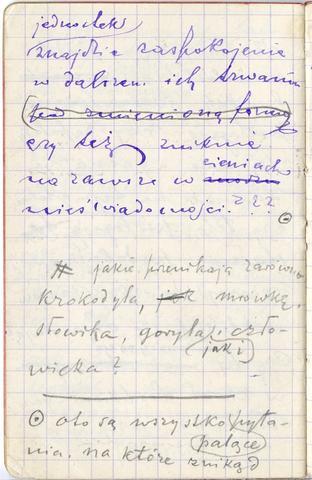 jednostek
znajdzie zaspokojenie
w dalszem ich trwaniu
(pod zmienioną formą)
czy też zniknie
cieniach
na zawsze w
nieświadomości. ???
# jakie przenikają zarówno
krokodyla, jak mrówkę,
słowika, goryla, i czło-
jaki
wieka?
⊙ oto są wszystko pyta-
palące
nia. na które znikąd